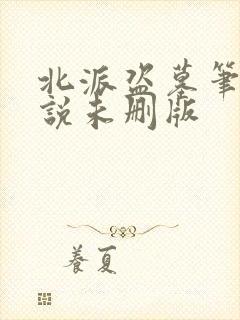 北派盗墓笔
説未删版
養夏